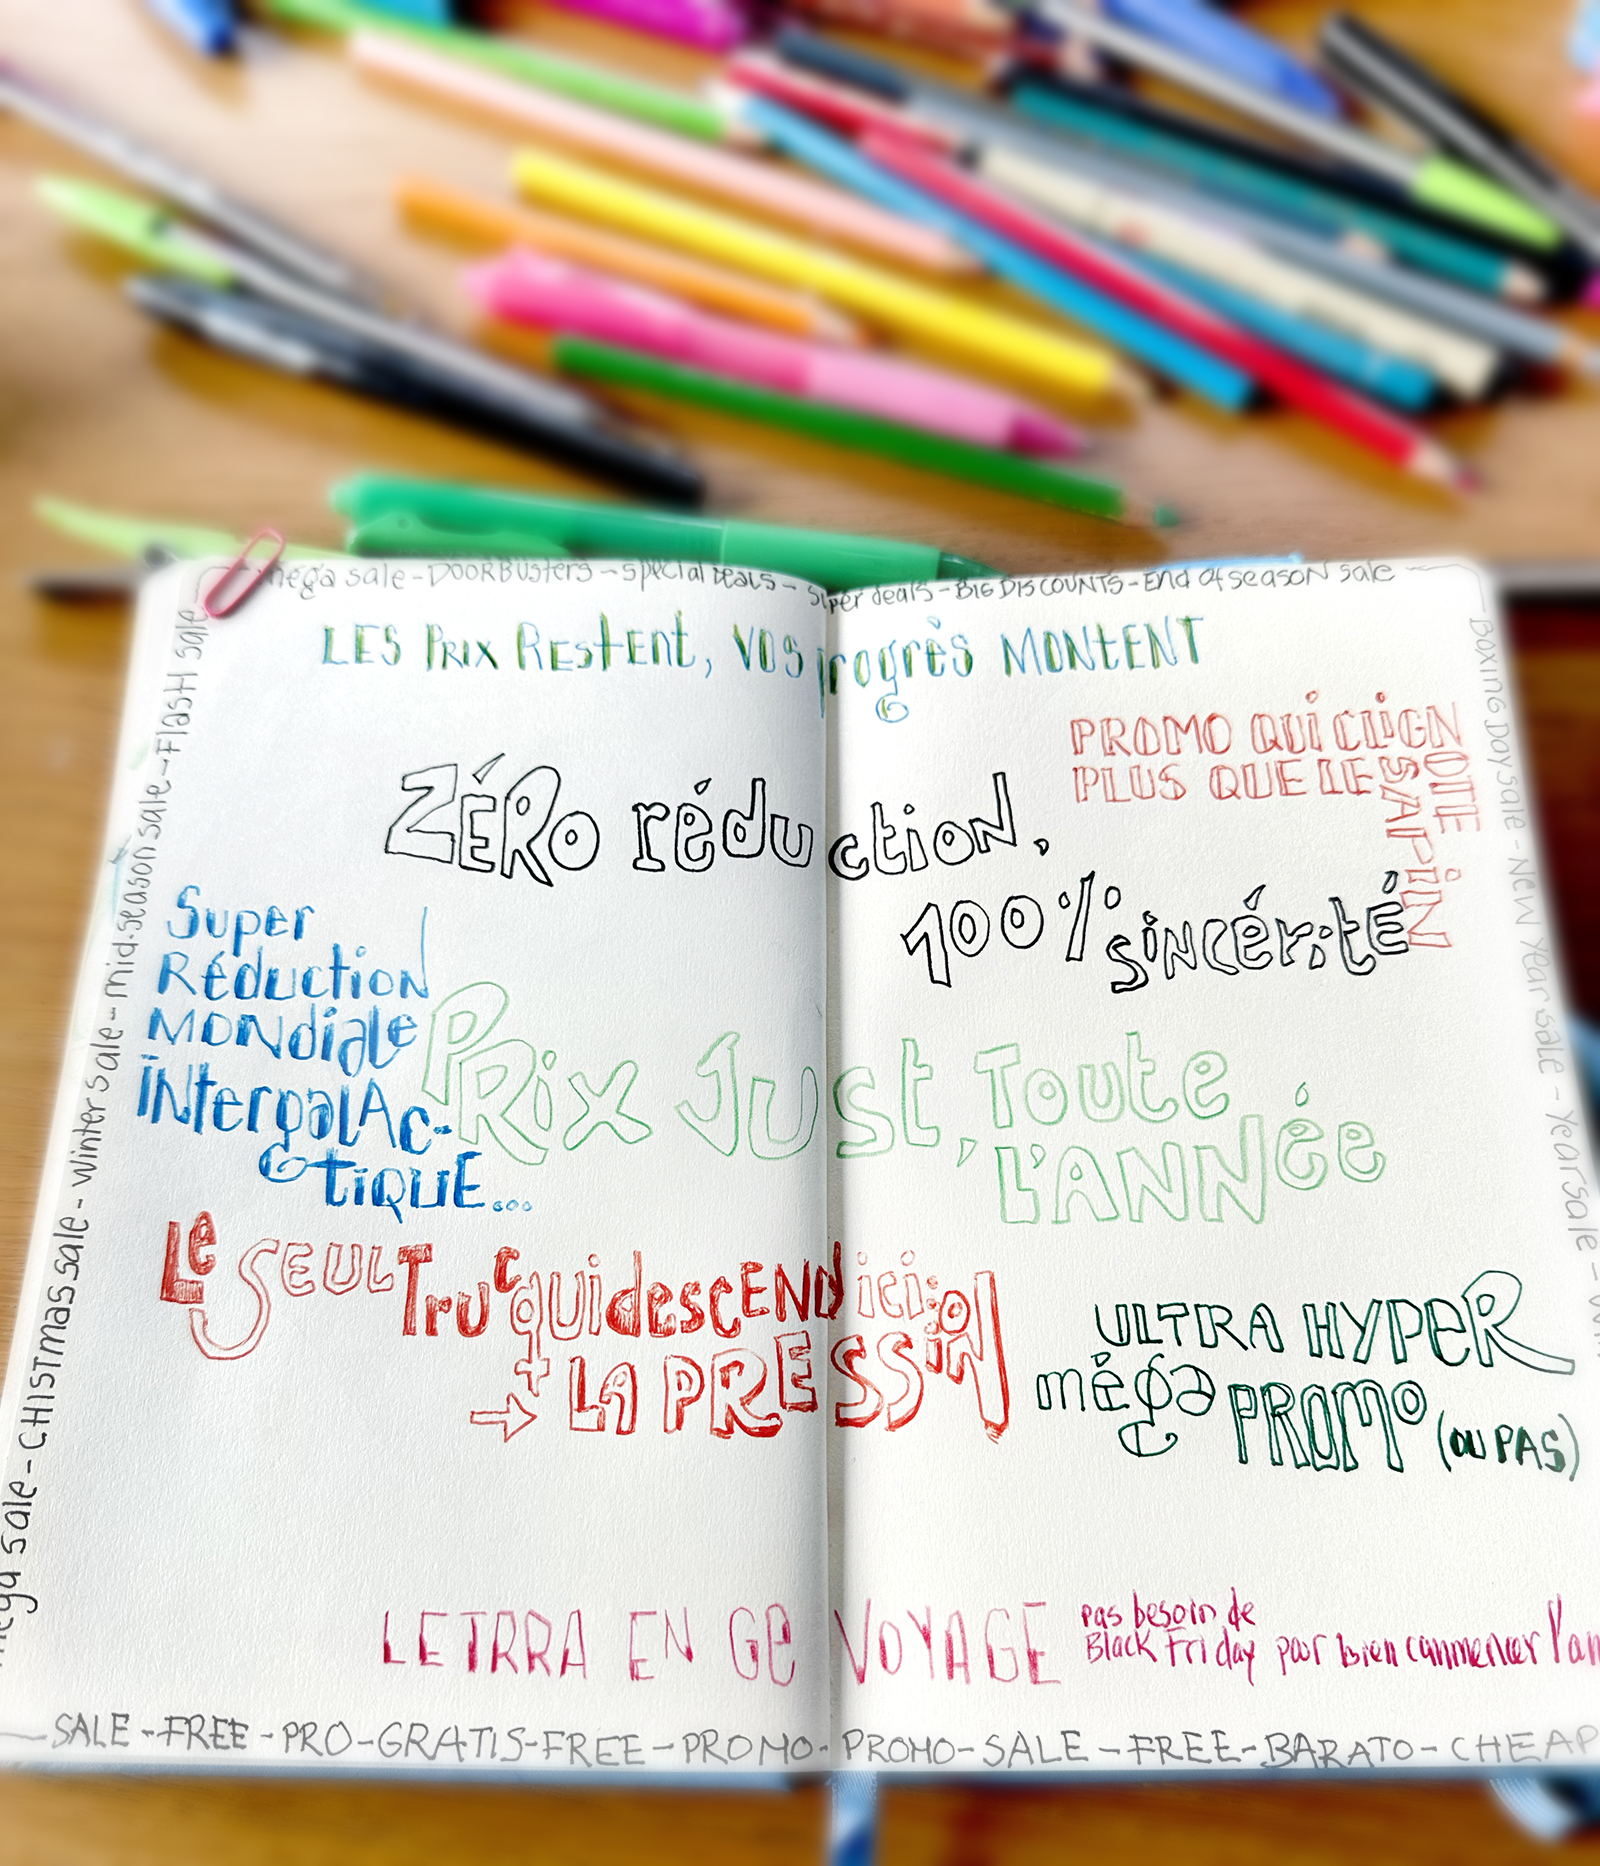 mega sale - DOORBUSters - special Deals - super deals - BIG DISCOUNTS - End of season sale
LES PRIX REStEnt, VOS progrès MONtENT
PROMO QUI CLIGNOTE
PLUS QUE LE SAPIN
ZÉRO réduction,
100% sincérité
Super
Réduction
MONdiale
iNtergalAc-
tiQUE...
PRix JUSt, Toute
L'ANNée
Le SEUL Truc qui descEND ici:
→ LA PRESSiON
ULTRA HYPeR
méga PROMO (OU PAS)
LETRRA EN GE VOYAGE
pas besoin de
Black Friday pour bien commencer l'an
SALE - FREE - PRO - GRATIS - FREE - PROMO - PROMO - SALE - FREE - BARATO - CHEAP
mega sale - CHISTmas sale - winter sale - mid.season sale - FlasH sale
BOXING Day sale - NEW Year sale - Year sale -